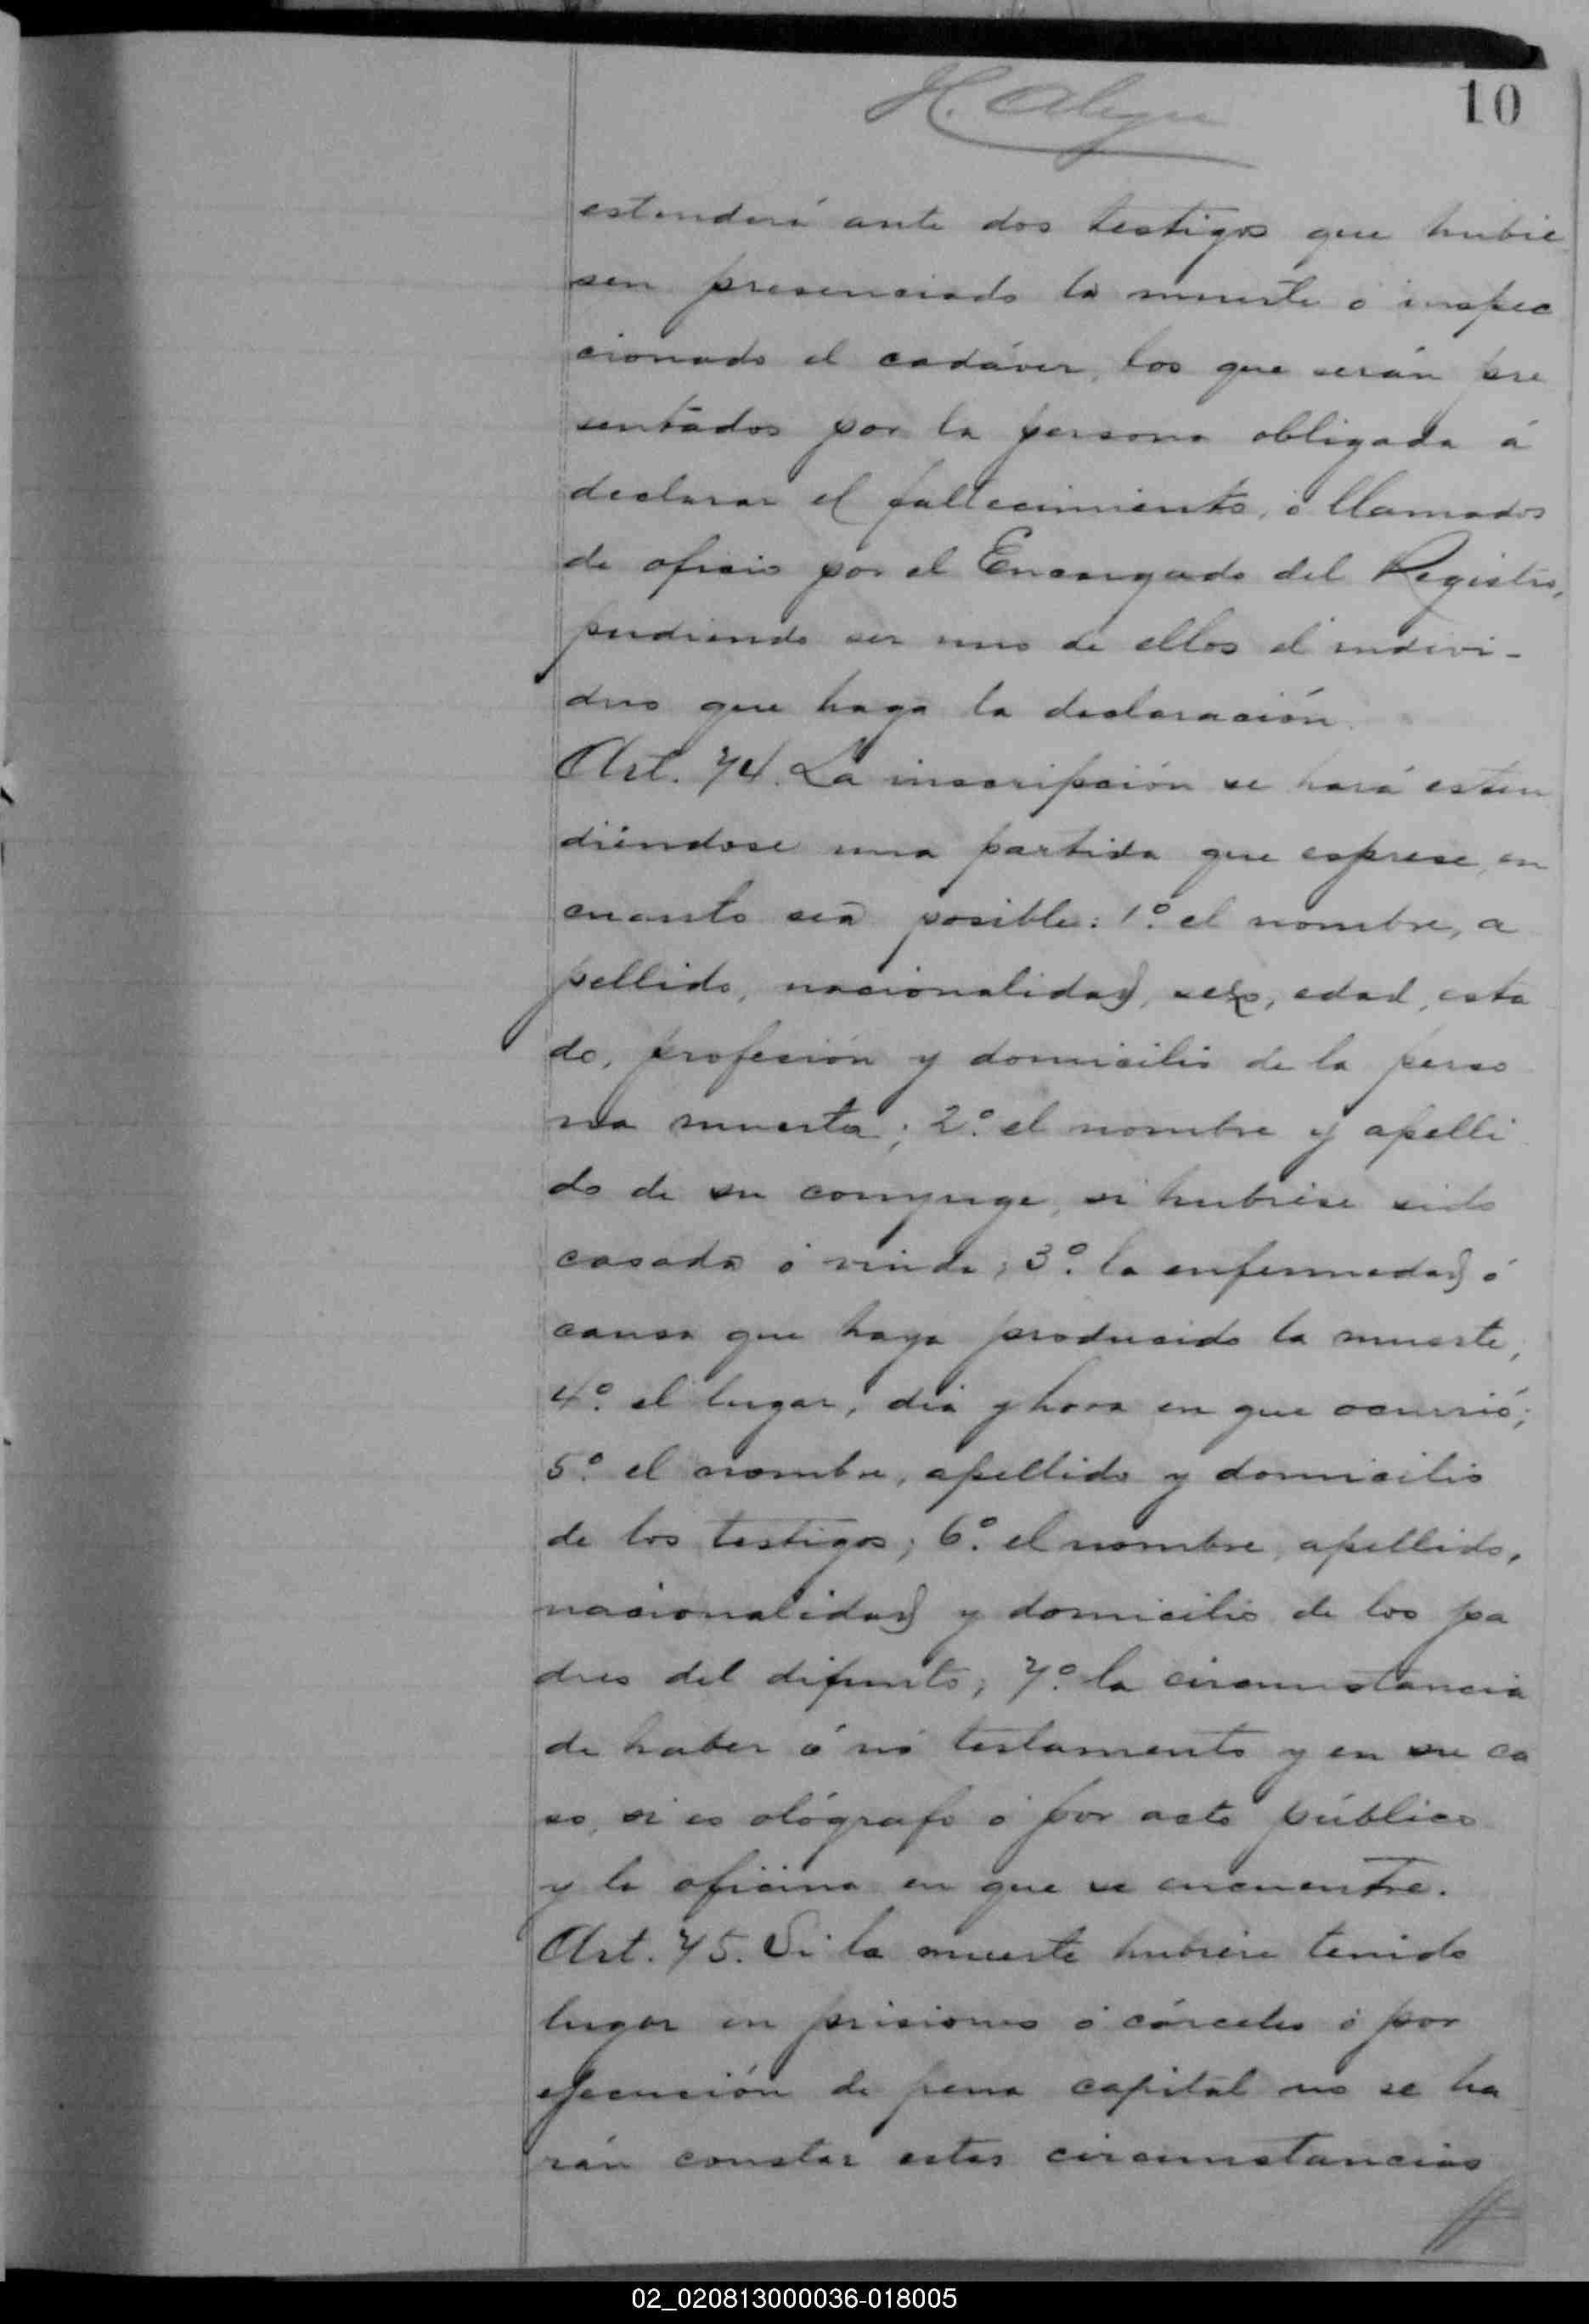 10
H. Alegre
estenderá ante dos testigos que hubie
sen presenciado la muerte ó inspec
cionado el cadáver, los que serán pre
sentados por la persona obligada á
declarar el fallecimiento, ó llamados
de oficio por el Encargado del Registro,
pudiendo ser uno de ellos el indivi-
duo que haga la declaración.
Art. 74. La inscripción se hará esten
diéndose una partida que esprese, en
cuanto sea posible: 1º. el nombre, a
pellido, nacionalidad, sexo, edad, esta
do, profesión y domicilio de la perso
na muerta; 2º. el nombre y apelli
do de su conyuge, si hubiese sido
casada ó viuda; 3º. la enfermedad ó
causa que haya producido la muerte,
4º. el lugar, dia y hora en que ocurrió;
5º. el nombre, apellido y domicilio
de los testigos; 6º. el nombre, apellido,
nacionalidad y domicilio de los pa
dres del difunto; 7º. la circunstancia
de haber ó nó testamento y en su ca
so, si es ológrafo ó por acto público
y la oficina en que se encuentre.
Art. 75. Si la muerte hubiere tenido
lugar en prisiones ó cárceles ó por
ejecución de pena capital no se ha
rán constar estas circunstancias
02_020813000036-018005